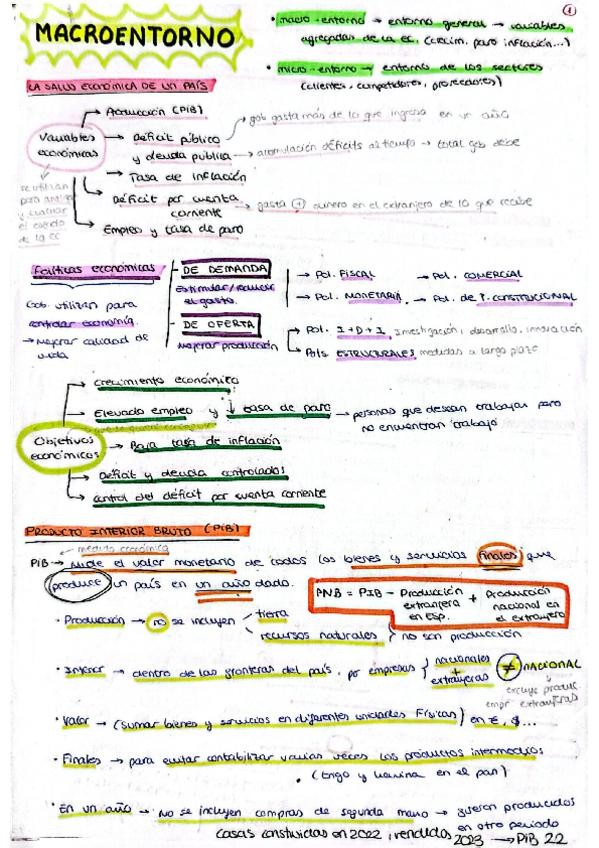 1
MACROENTORNO
• macro-entorno → entorno general → variables
agregadas de la ec. (crecim, paro inflación...)
• micro-entorno → entorno de los sectores
(clientes, competidores, proveedores)
LA SALUD ECONÓMICA DE UN PAÍS
Variables
económicas
se utilizan
para
y evaluar
el estado
de la ec
→ Producción (PIB)
→ Déficit público → gob gasta más de lo que ingresa en un año
y deuda pública → acumulación déficits al tiempo → total gob debe
→ Tasa de inflación
→ Déficit por cuenta
corriente → gasta + dinero en el extranjero de lo que recibe
→ Empleo y tasa de paro
Políticas económicas
Gob. utilizan para
controlar economía.
→ Mejorar calidad de
vida
DE DEMANDA
Estimular/reducir
el gasto.
→ Pol. FISCAL → Pol. COMERCIAL
→ Pol. MONETARIA → Pol. de T. CONSTITUCIONAL
DE OFERTA
Mejorar producción
→ Pol. I+D+I Investigación, desarrollo, innovación
→ Pols ESTRUCTURALES medidas a largo plazo
Objetivos
económicos
→ Crecimiento económico
→ Elevado empleo y ↓ tasa de paro → personas que desean trabajar pero
no encuentran trabajo
→ Baja tasa de inflación
→ Déficit y deuda controlados
→ control del déficit por cuenta corriente
PRODUCTO INTERIOR BRUTO (PIB)
medida económica
PIB → Mide el valor monetario de todos los bienes y servicios finales que
produce un país en un año dado.
PNB = PIB - Producción extranjera en ESP. + Producción nacional en el extranjero
• Producción → no se incluyen tierra
recursos naturales } no son producción
• Interior → dentro de las fronteras del país, por empresas { nacionales + extranjeras ≠ NACIONAL
excluye produc.
empr extranjeras
• Valor → (sumar bienes y servicios en diferentes unidades físicas) en €, $...
• Finales → para evitar contabilizar varias veces los productos intermedios
• (trigo y harina en el pan)
• En un año → No se incluyen compras de segunda mano → fueron producidos
en otro periodo
casas construidas en 2022, vendidas 2023 → PIB 22